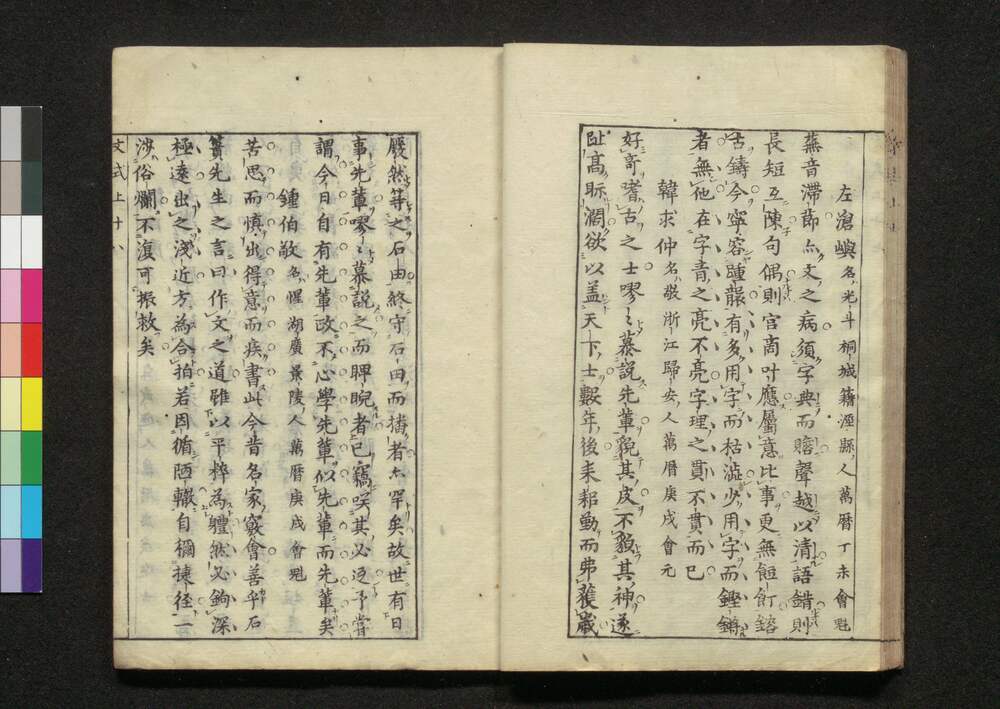 左滄嶼名光斗桐城籍涇縣人萬曆丁未會魁
蕪音滯節亦文之病須字典而贍聲越以清語錯則
長短互陳句偶則宮商叶應屬意比事更無飣餖鎔
古鑄今寧容踵襲有多用字而枯澁少用字而鏗鏘
者無他在字青之亮不亮字理之貫不貫而已
韓求仲名敬浙江歸安人萬曆庚戌會元
好奇嗜古之士嘐〻慕說先輩貌其皮不貌其神遂
趾高眎濶欲以盖天下士數年後来郄動而弗獲歲
屐然等之石由終守石由而擕者亦罕矣故世有日
事先輩嘐〻慕說之而睥睨者已竊咲其必迃予甞
謂今日自有先輩政不心學先輩似先輩而先輩矣
鍾伯敬名惺湖廣景陵人萬曆庚戌會魁
苦思而慎出得意而疾書此今昔名家竅會善乎石
簣先生之言曰作文之道雖以平粹為軆然必鉤深
極遠出之淺近方為合拍若因循陋轍自稱捷径一
渉俗爛不復可振救矣
文式上十八